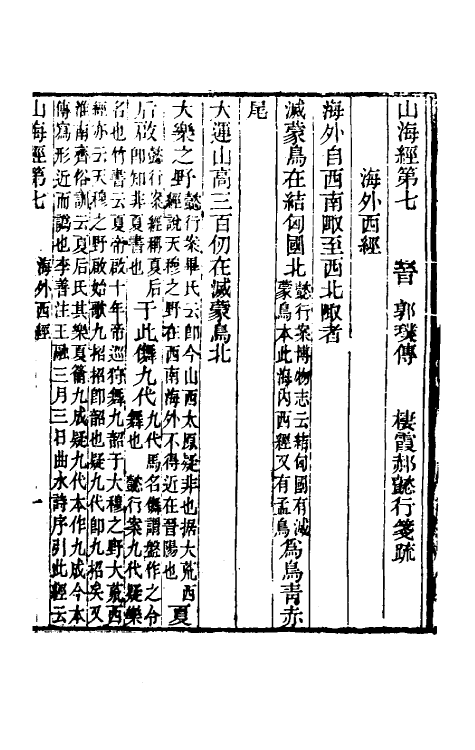 山海經第七　晉　郭璞傳　棲霞郝懿行箋疏
海外西經
海外自西南陬至西北陬者
滅蒙鳥在結匈國北
懿行案博物志云結匈國有滅
蒙鳥本此海內西經又有孟鳥
為鳥青赤
尾
大運山高三百仞在滅蒙鳥北
大樂之野
懿行案畢氏云即今山西太原疑非也据大荒西
經說天穆之野在西南海外不得近在晉陽也
夏
后啟
懿行案經稱夏后
即知非夏書也
于此儛九代
九代馬名儛謂盤作之令
舞也　懿行案九代疑樂
名也竹書云夏帝啟十年帝巡狩舞九韶于大穆之野大荒西
經亦云天穆之野啟始歌九招招即韶也疑九代即九招矣又
淮南齊俗訓云夏后氏其樂夏籥九成疑九代本作九成今本
傳寫形近而譌也李善注王融三月三日曲水詩序引此經云
山海經第七　海外西經　一